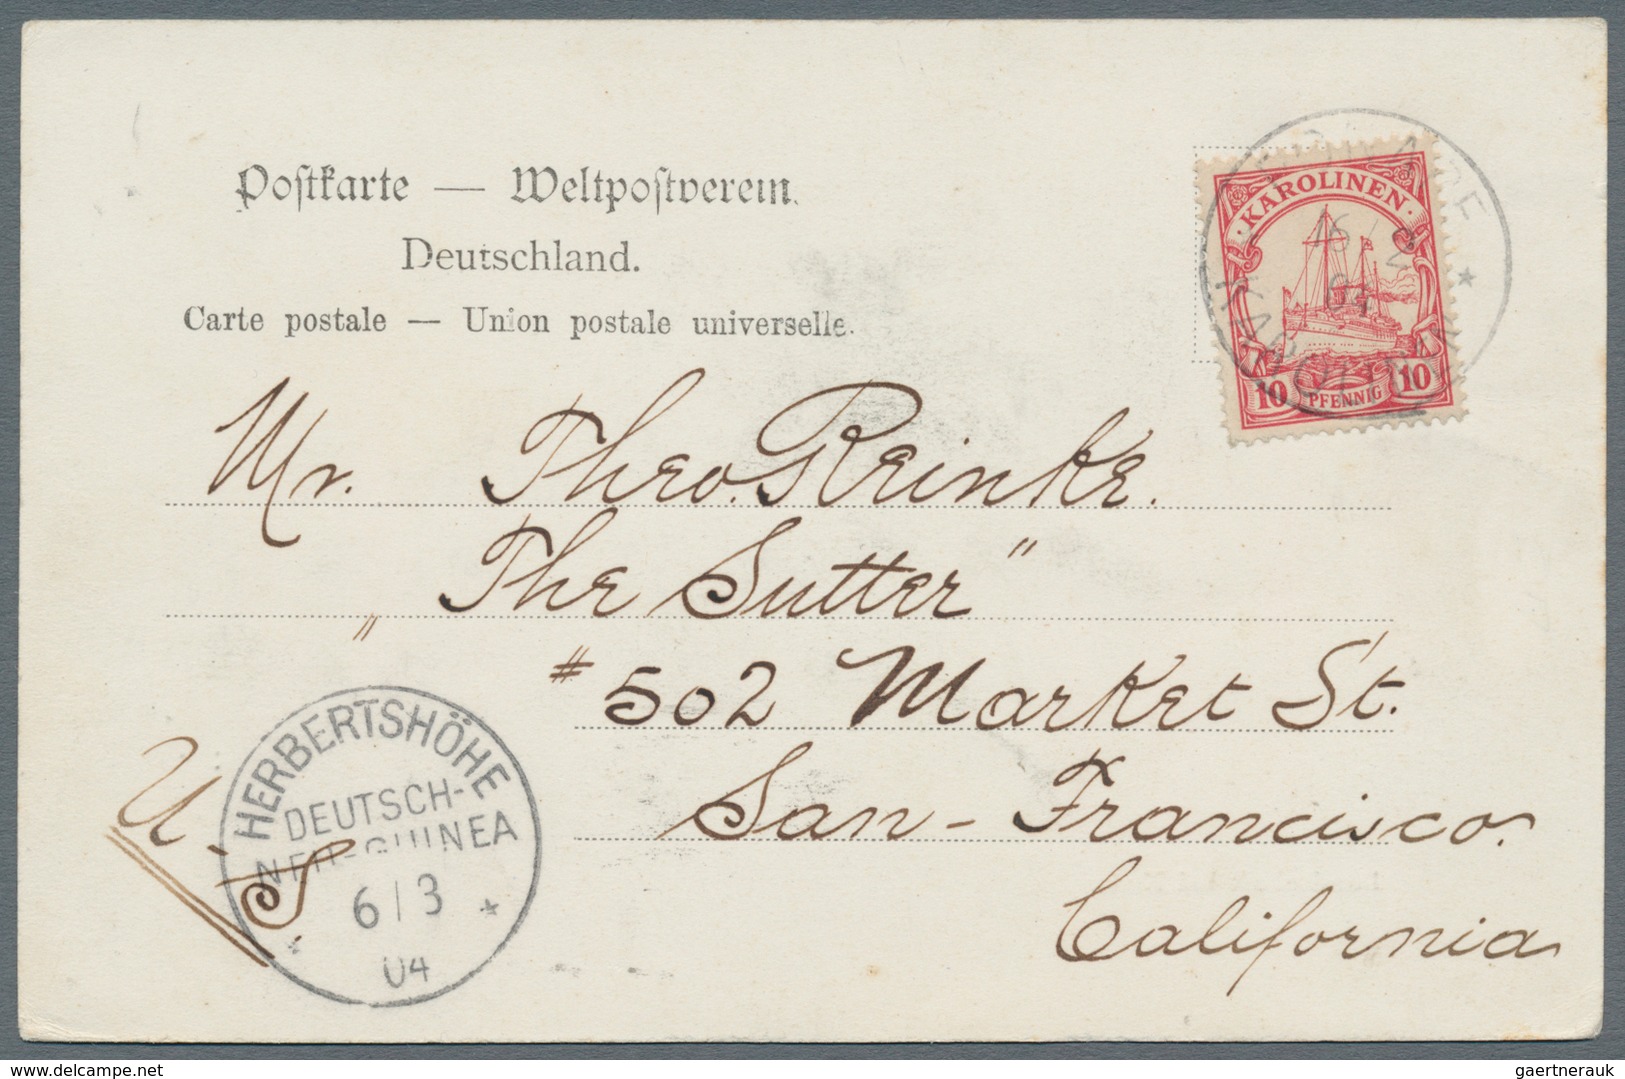 Postkarte — Weltpostverein.
Deutschland.
Carte postale — Union postale universelle.
KAROLINEN
10 PFENNIG 10
16/2
04
KAROLINEN
Mr. Theo. Reinke.
"The Sutter"
# 502 Market St.
San-Francisco.
California
U.S.
HERBERTSHÖHE
DEUTSCH-
NEU-GUINEA
6/3
04
www.delcampe.net
gaertnerauk